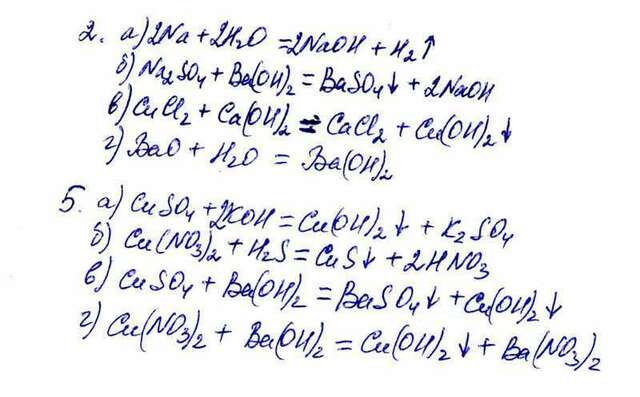 2. а) 2Na + 2H₂O = 2NaOH + H₂↑
б) Na₂SO₄ + Ba(OH)₂ = BaSO₄↓ + 2NaOH
в) CuCl₂ + Ca(OH)₂ = CaCl₂ + Cu(OH)₂↓
г) BaO + H₂O = Ba(OH)₂
5. а) CuSO₄ + 2KOH = Cu(OH)₂↓ + K₂SO₄
б) Cu(NO₃)₂ + H₂S = CuS↓ + 2HNO₃
в) CuSO₄ + Ba(OH)₂ = BaSO₄↓ + Cu(OH)₂↓
г) Cu(NO₃)₂ + Ba(OH)₂ = Cu(OH)₂↓ + Ba(NO₃)₂